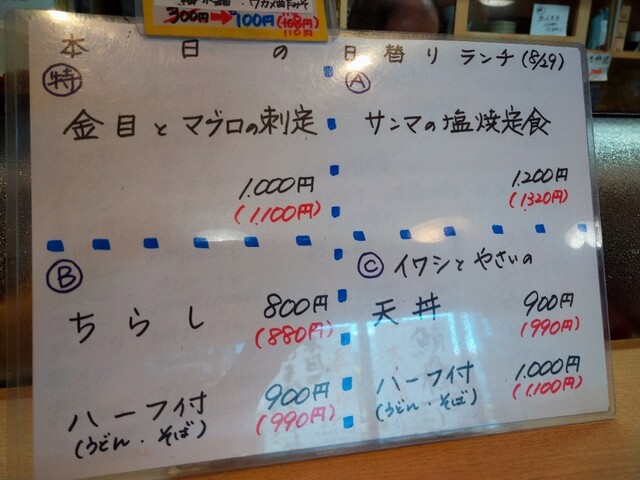 300円→100円
110円
本日の日替りランチ(8/29)
特
金目とマグロの刺定
1.000円
(1.100円)
A
サンマの塩焼定食
1.200円
(1.320円)
B
ちらし
800円
(880円)
ハーフ付
900円
(うどん・そば)
(990円)
C イワシとやさいの
天丼
900円
(990円)
ハーフ付
1.000円
(うどん・そば)
(1.100円)